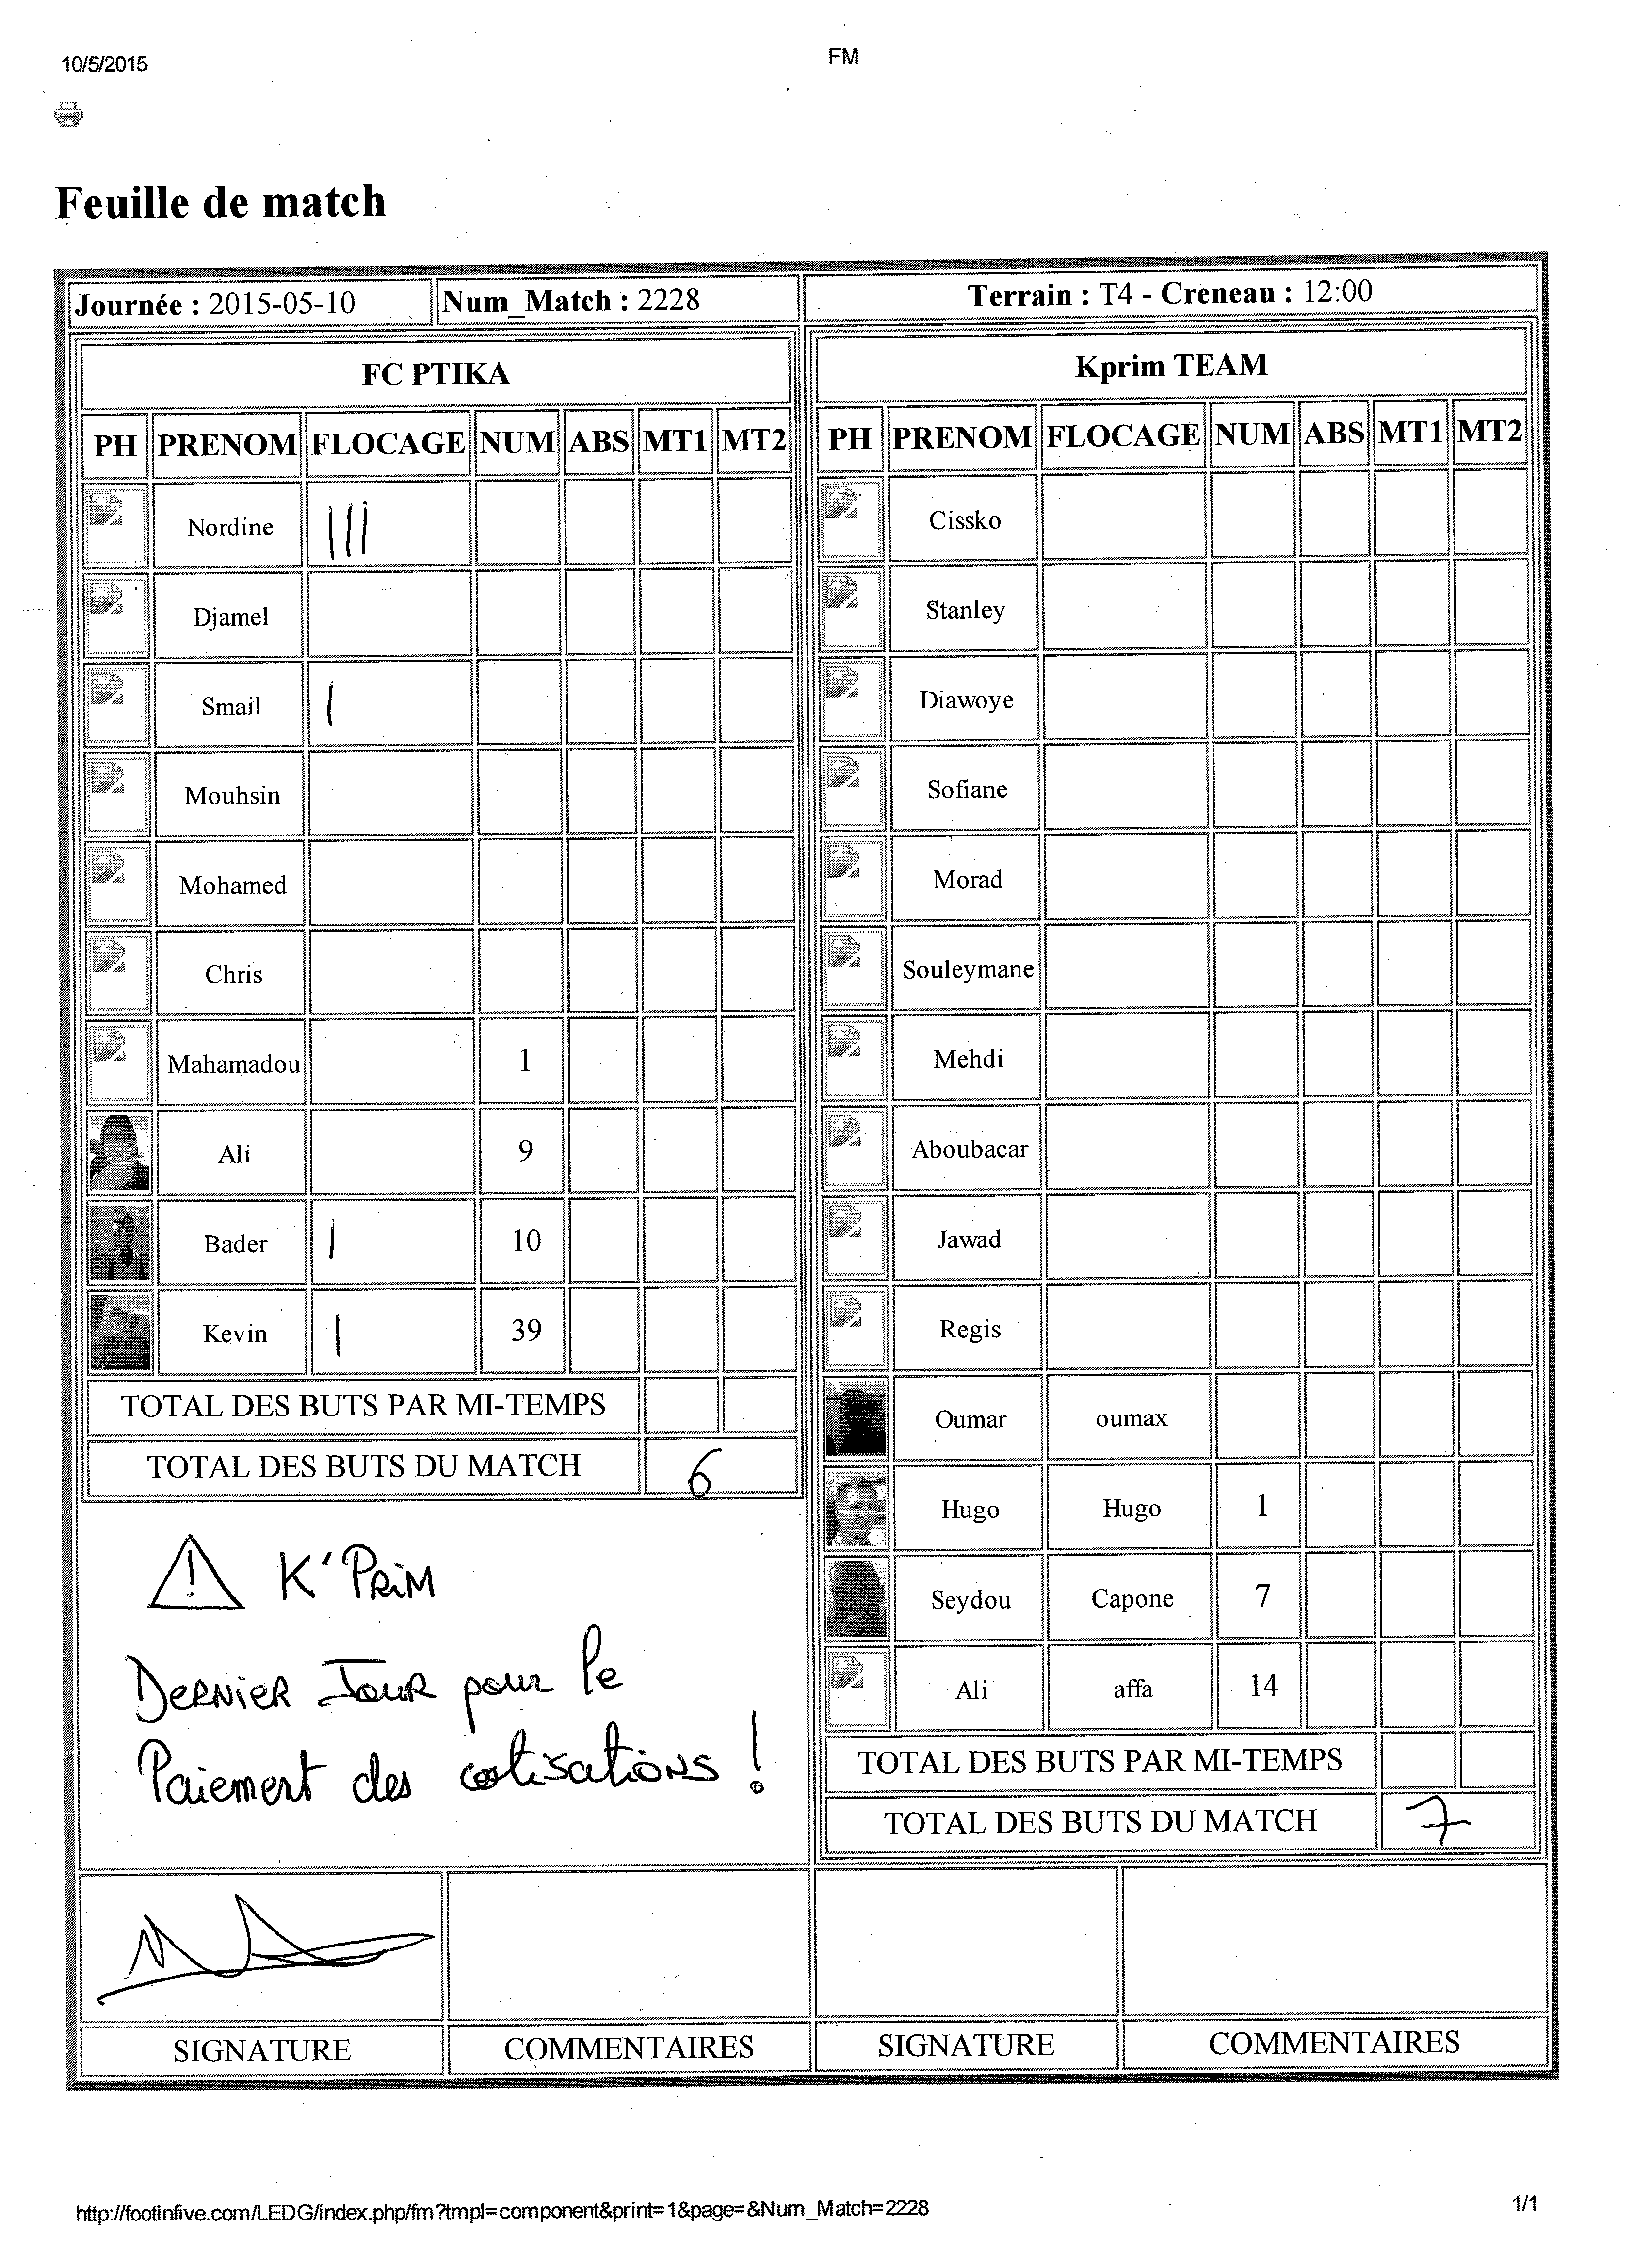 10/5/2015 FM
Feuille de match
Journée : 2015-05-10 Num_Match : 2228 Terrain : T4 - Creneau : 12:00
FC PTIKA
PH PRENOM FLOCAGE NUM ABS MT1 MT2
Nordine |||
Djamel
Smail |
Mouhsin
Mohamed
Chris
Mahamadou 1
Ali 9
Bader | 10
Kevin | 39
TOTAL DES BUTS PAR MI-TEMPS
TOTAL DES BUTS DU MATCH 6
⚠ K'PRiM
DERNiER JOUR pour le
Paiement des cotisations !
Kprim TEAM
PH PRENOM FLOCAGE NUM ABS MT1 MT2
Cissko
Stanley
Diawoye
Sofiane
Morad
Souleymane
Mehdi
Aboubacar
Jawad
Regis
Oumar oumax
Hugo Hugo 1
Seydou Capone 7
Ali affa 14
TOTAL DES BUTS PAR MI-TEMPS
TOTAL DES BUTS DU MATCH 7
SIGNATURE COMMENTAIRES SIGNATURE COMMENTAIRES
http://footinfive.com/LEDG/index.php/fm?tmpl=component&print=1&page=&Num_Match=2228 1/1